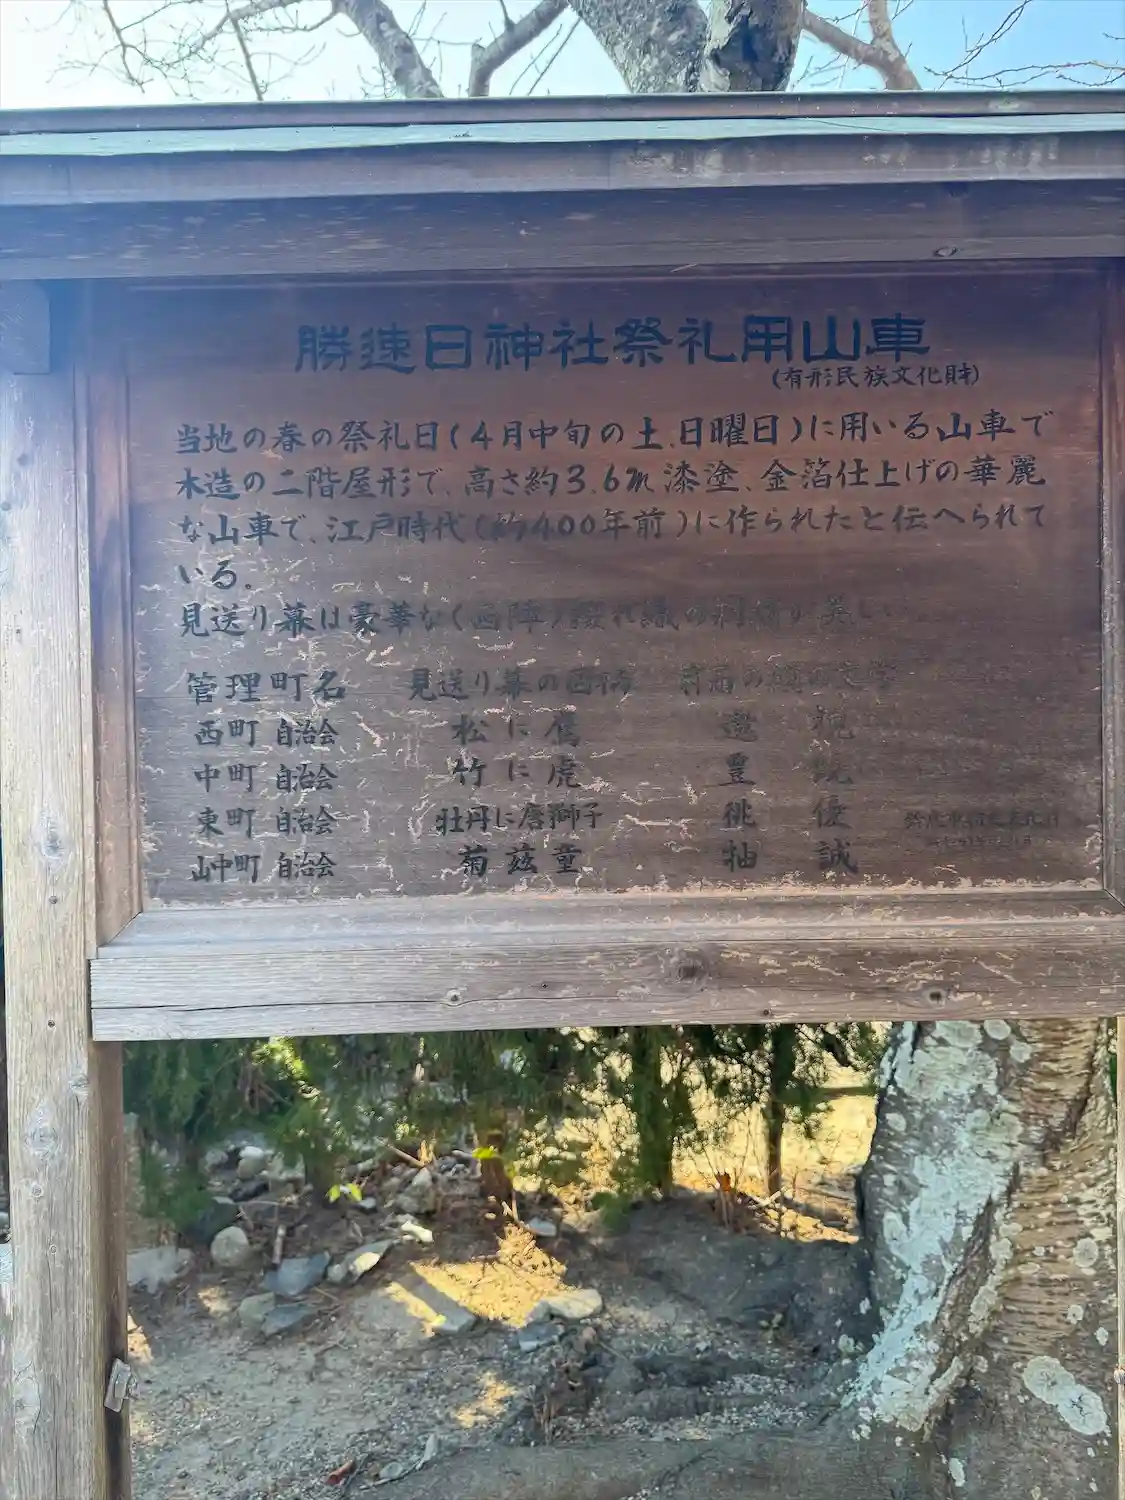 勝速日神社祭礼用山車
(有形民族文化財)
当地の春の祭礼日(4月中旬の土、日曜日)に用いる山車で
木造の二階屋形で、高さ約3.6m漆塗、金箔仕上げの華麗
な山車で、江戸時代(約400年前)に作られたと伝へられて
いる。
見送り幕は豪華な(西陣)綴れ織の刺繍が美しい
管理町名 見送り幕の図柄
西町 自治会 松に鷹
中町 自治会 竹に虎 豊
東町 自治会 牡丹に唐獅子 優
山中町 自治会 菊茲童 抽 誠